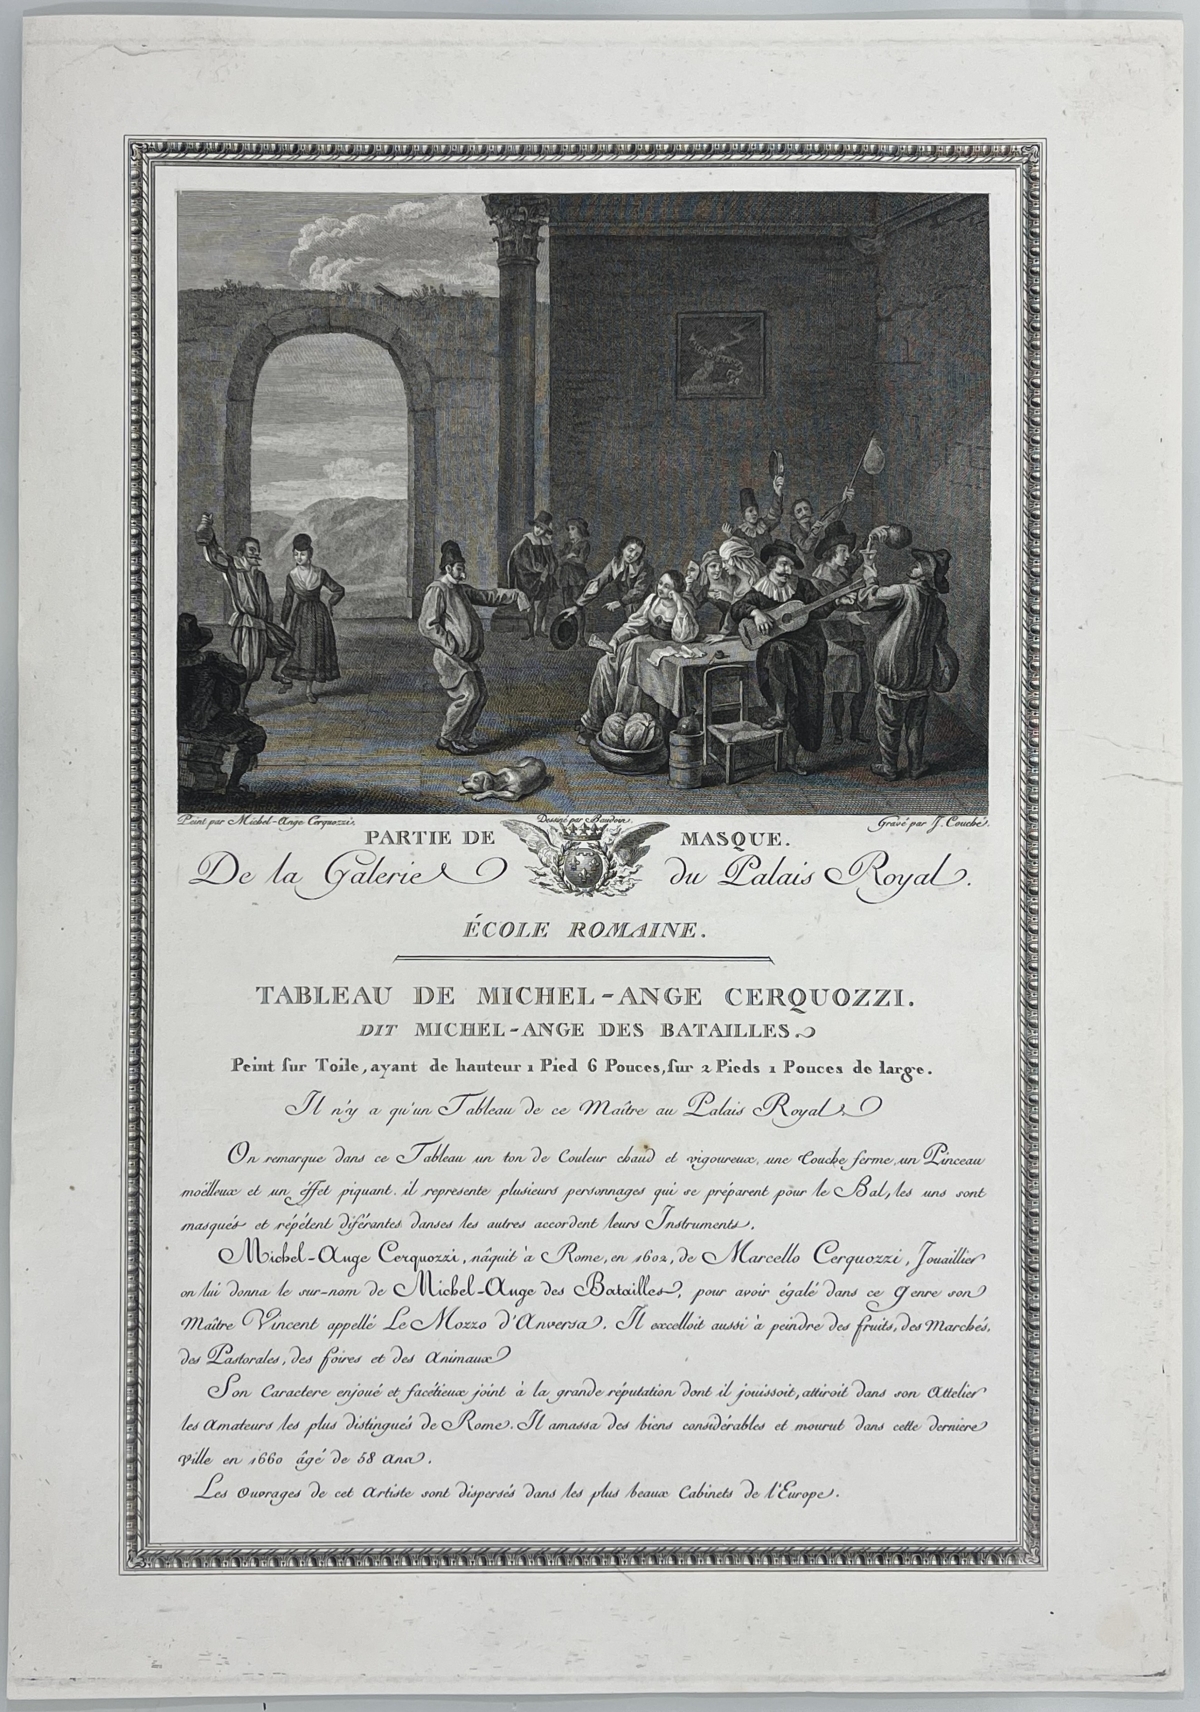 Peint par Michel-Ange Cerquozzi.
Dessiné par Baudoin.
Gravé par J. Couché.
PARTIE DE MASQUE.
De la Galerie du Palais Royal.
ÉCOLE ROMAINE.
TABLEAU DE MICHEL-ANGE CERQUOZZI.
DIT MICHEL-ANGE DES BATAILLES.
Peint sur Toile, ayant de hauteur 1 Pied 6 Pouces, sur 2 Pieds 1 Pouces de large.
Il n'y a qu'un Tableau de ce Maître au Palais Royal.
On remarque dans ce Tableau un ton de Couleur chaud et vigoureux, une Touche ferme, un Pinceau
moëlleux et un éffet piquant. il represente plusieurs personnages qui se préparent pour le Bal, les uns sont
masqués et répétent diférantes danses les autres accordent leurs Instruments.
Michel-Ange Cerquozzi, nâquit à Rome, en 1602, de Marcello Cerquozzi, Jouaillier
on lui donna le sur-nom de Michel-Ange des Batailles, pour avoir égalé dans ce Genre son
Maître Vincent appellé Le Mozzo d'Anversa. Il excelloit aussi à peindre des fruits, des Marchés,
des Pastorales, des foires et des Animaux
Son Caractere enjoué et facetieux joint à la grande réputation dont il jouissoit, attiroit dans son Attelier
les Amateurs les plus distingués de Rome. Il amassa des biens considérables et mourut dans cette derniere
ville en 1660 âgé de 58 Ans.
Les Ouvrages de cet Artiste sont dispersés dans les plus beaux Cabinets de l'Europe.